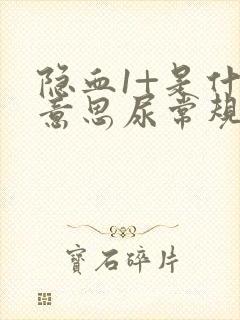 隐血1+是什
意思尿常规
寶石碎片